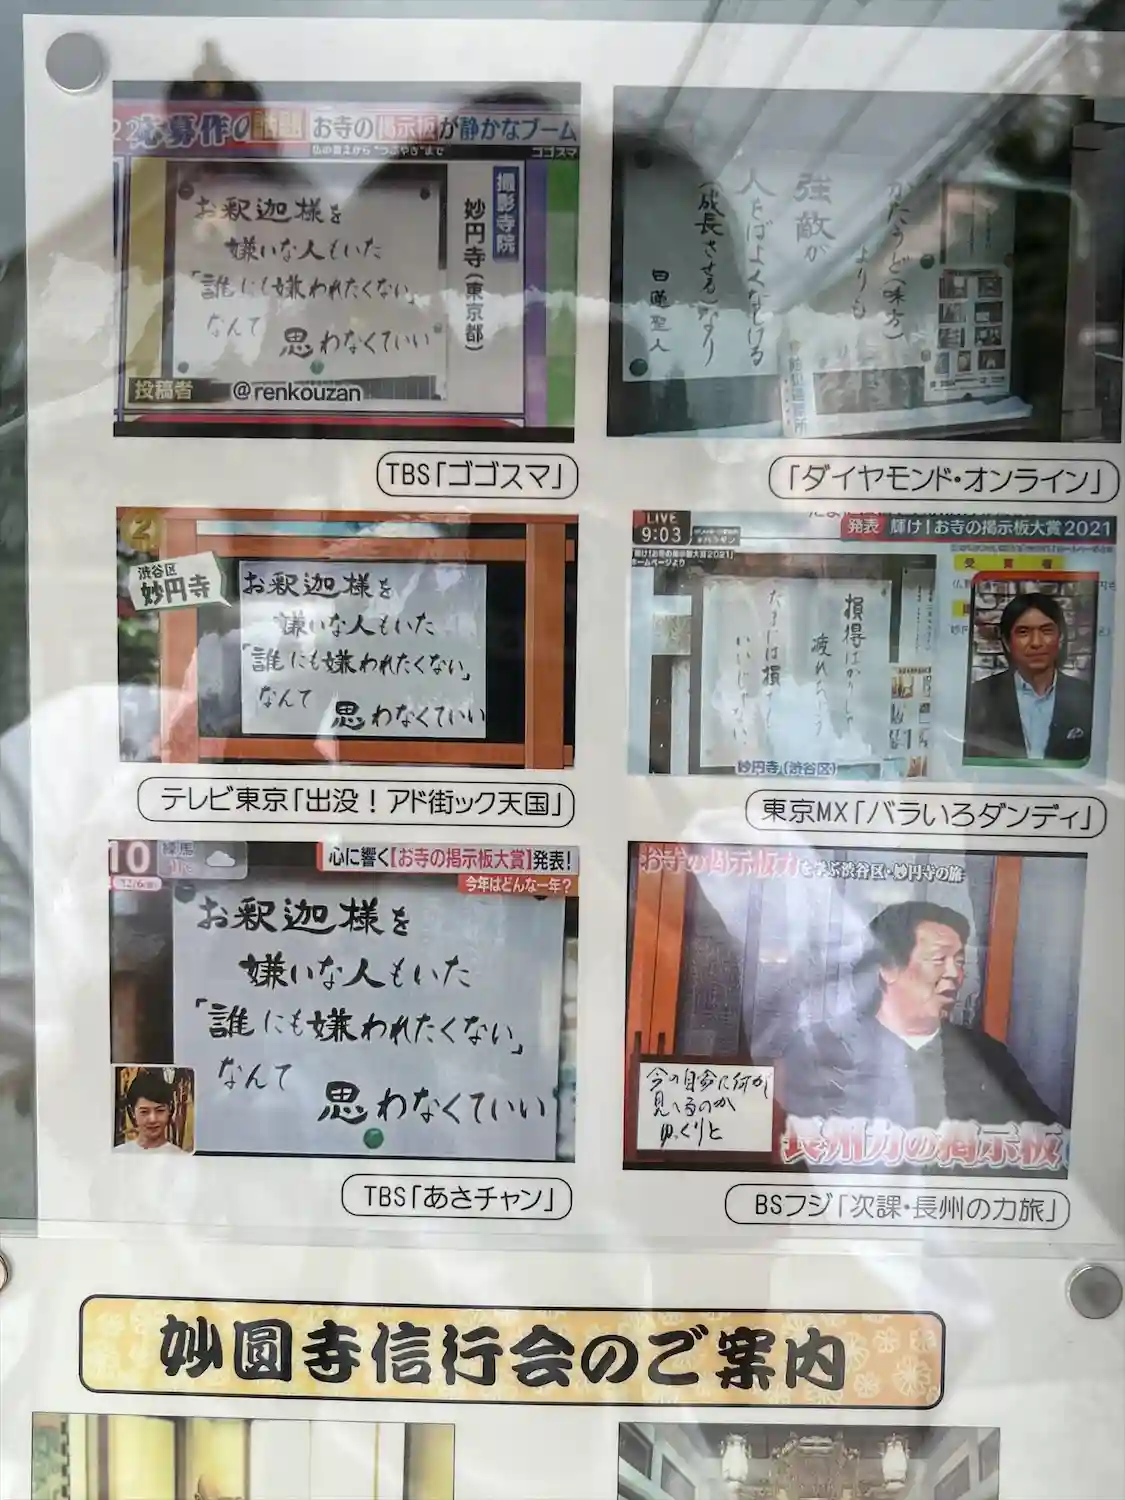 応募作の話題 お寺の掲示板が静かなブーム
仏の教えから"つぶやき"まで
ゴゴスマ
撮影寺院
妙円寺(東京都)
お釈迦様を
嫌いな人もいた
「誰にも嫌われたくない」
なんて
思わなくていい
投稿者 @renkouzan
TBS「ゴゴスマ」
かたうど(味方)
よりも
強敵が
人をばよくなしける
(成長させる)なり
日蓮聖人
「ダイヤモンド・オンライン」
2
渋谷区
妙円寺
お釈迦様を
嫌いな人もいた
「誰にも嫌われたくない」
なんて
思わなくていい
テレビ東京「出没！アド街ック天国」
LIVE
9:03
発表 輝け！お寺の掲示板大賞2021
輝け！お寺の掲示板大賞2021」
ホームページより
受賞
損得ばかりじゃ
疲れちゃう
たまには損も
いいじゃない
妙円寺(渋谷区)
東京MX「バラいろダンディ」
10
練馬
心に響く【お寺の掲示板大賞】発表！
今年はどんな一年？
お釈迦様を
嫌いな人もいた
「誰にも嫌われたくない」
なんて
思わなくていい
TBS「あさチャン」
お寺の掲示板力を学ぶ渋谷区・妙円寺の旅
今の自分に何が
見えるのか
ゆっくりと
長州力の掲示板
BSフジ「次課・長州の力旅」
妙圓寺信行会のご案内